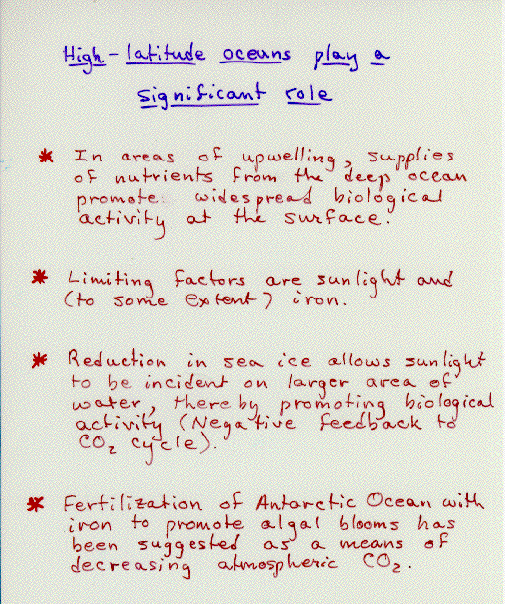 High-latitude oceans play a
significant role
* In areas of upwelling, supplies
of nutrients from the deep ocean
promote widespread biological
activity at the surface.
* Limiting factors are sunlight and
(to some extent) iron.
* Reduction in sea ice allows sunlight
to be incident on larger area of
water, thereby promoting biological
activity (Negative feedback to
CO₂ cycle).
* Fertilization of Antarctic Ocean with
iron to promote algal blooms has
been suggested as a means of
decreasing atmospheric CO₂.